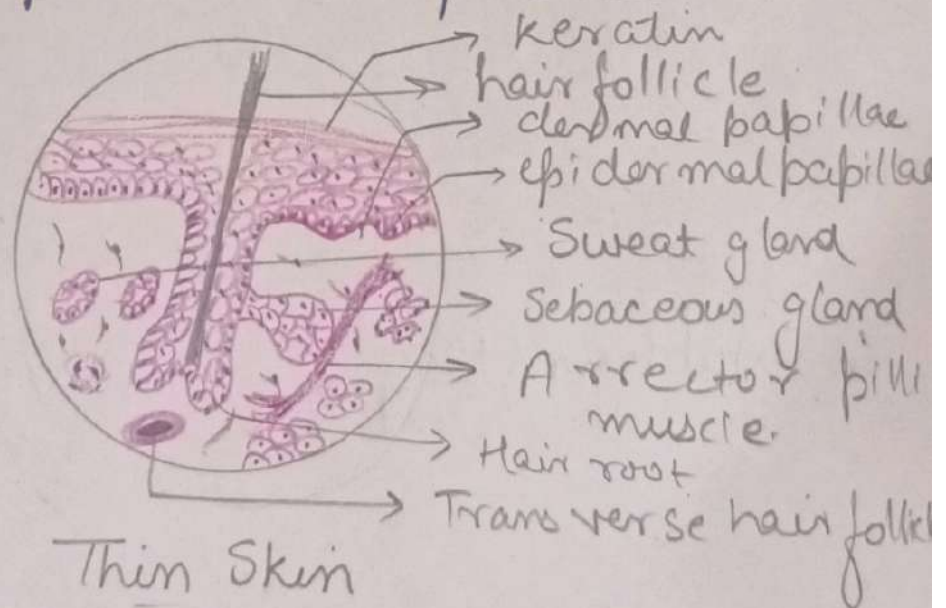 keratin
hair follicle
dermal papillae
epidermal papillae
Sweat gland
Sebaceous gland
Arrector pilli
muscle.
Hair root
Transverse hair follicl
Thin Skin